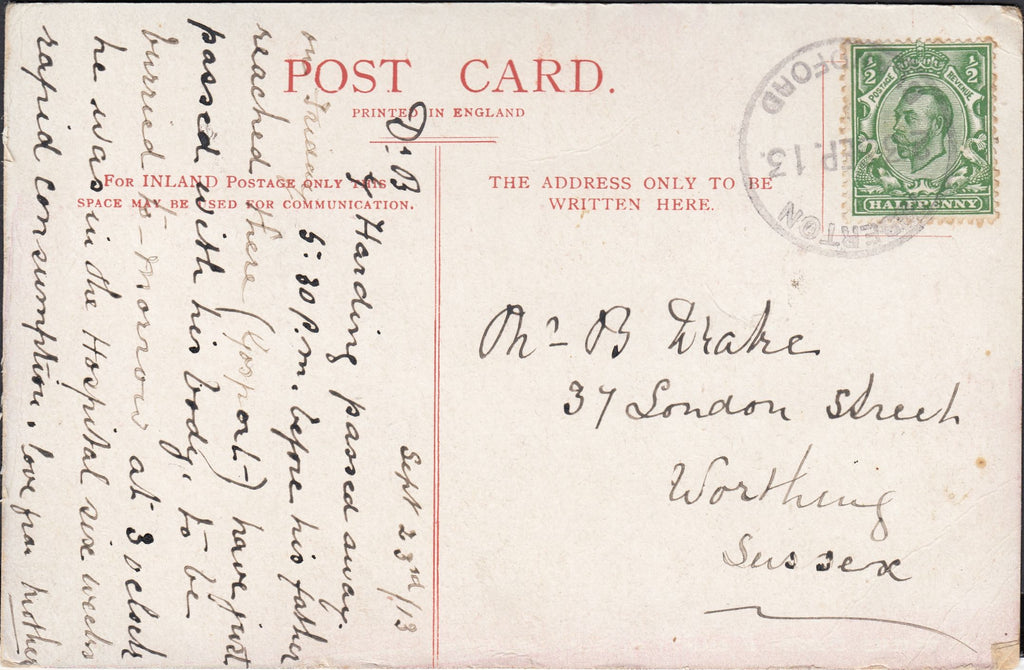 POST CARD.
PRINTED IN ENGLAND
FOR INLAND POSTAGE ONLY THIS
SPACE MAY BE USED FOR COMMUNICATION.
THE ADDRESS ONLY TO BE
WRITTEN HERE.
½ ½
POSTAGE REVENUE
HALFPENNY
DFORD
EP. 13
ERTON
Mr B Drake
37 London Street
Worthing
Sussex
Sept 23rd/13
D. B
Harding passed away
on Friday 5.30 P.m. before his father
reached there (Gosport) have just
passed with his body. to be
burried to-morrow at 3 oclock
he was in the Hospital six weeks
rapid Consumption. love from Mother